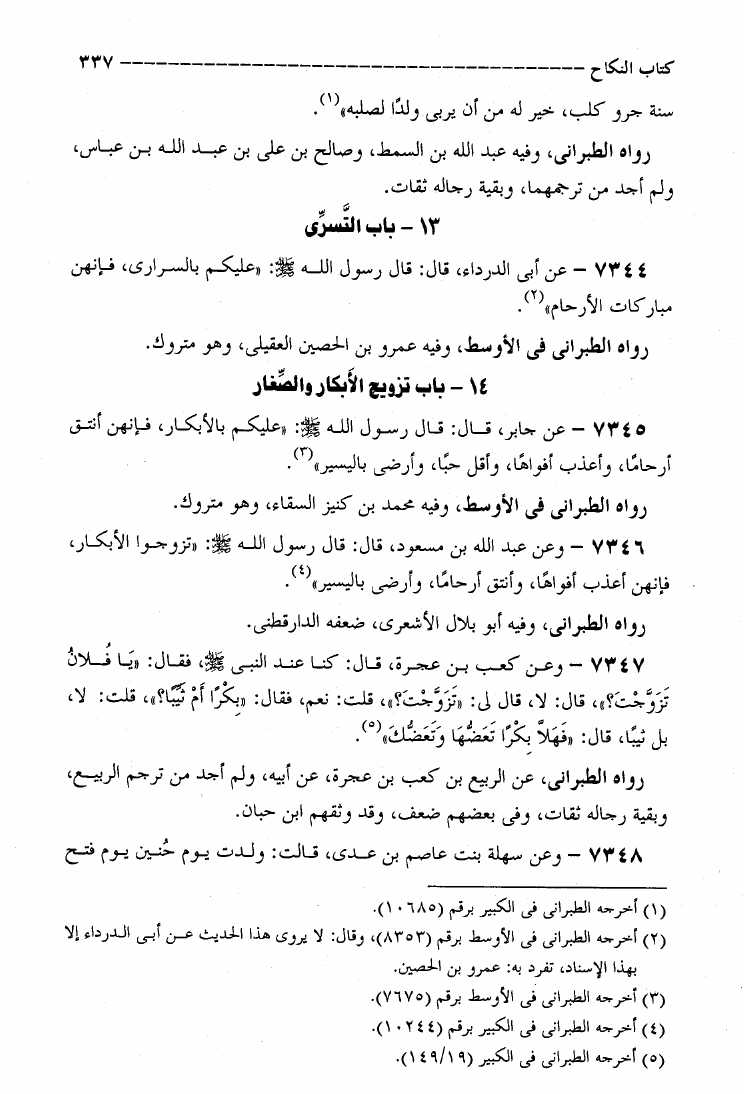 كتاب النكاح ------------------------------------- ٣٣٧
سنة جرو كلب، خير له من أن يربى ولدًا لصلبه»(١).
رواه الطبرانى، وفيه عبد الله بن السمط، وصالح بن على بن عبد الله بن عباس،
ولم أجد من ترجمهما، وبقية رجاله ثقات.
١٣ - باب التَّسرِّى
٧٣٤٤ - عن أبى الدرداء، قال: قال رسول الله ﷺ: «عليكم بالسرارى، فإنهن
مباركات الأرحام»(٢).
رواه الطبرانى فى الأوسط، وفيه عمرو بن الحصين العقيلى، وهو متروك.
١٤ - باب تزويج الأبكار والصِّغار
٧٣٤٥ - عن جابر، قال: قال رسول الله ﷺ: «عليكم بالأبكار، فإنهن أنتق
أرحامًا، وأعذب أفواهًا، وأقل حبًا، وأرضى باليسير»(٣).
رواه الطبرانى فى الأوسط، وفيه محمد بن كنيز السقاء، وهو متروك.
٧٣٤٦ - وعن عبد الله بن مسعود، قال: قال رسول الله ﷺ: «تزوجوا الأبكار،
فإنهن أعذب أفواهًا، وأنتق أرحامًا، وأرضى باليسير»(٤).
رواه الطبرانى، وفيه أبو بلال الأشعرى، ضعفه الدارقطنى.
٧٣٤٧ - وعن كعب بن عجرة، قال: كنا عند النبى ﷺ، فقال: «يَا فُلانُ
تَزَوَّجْتَ؟»، قال: لا، قال لى: «تَزَوَّجْتَ؟»، قلت: نعم، فقال: «بِكْرًا أَمْ ثَيِّبًا؟»، قلت: لا،
بل ثيبًا، قال: «فَهَلاَّ بِكْرًا تَعَضُّهَا وَتَعَضُّكَ»(٥).
رواه الطبرانى، عن الربيع بن كعب بن عجرة، عن أبيه، ولم أجد من ترجم الربيع،
وبقية رجاله ثقات، وفى بعضهم ضعف، وقد وثقهم ابن حبان.
٧٣٤٨ - وعن سهلة بنت عاصم بن عدى، قالت: ولدت يوم حُنين يوم فتح
(١) أخرجه الطبرانى فى الكبير برقم (١٠٦٨٥).
(٢) أخرجه الطبرانى فى الأوسط برقم (٨٣٥٣)، وقال: لا يروى هذا الحديث عن أبى الدرداء إلا
بهذا الإسناد، تفرد به: عمرو بن الحصين.
(٣) أخرجه الطبرانى فى الأوسط برقم (٧٦٧٥).
(٤) أخرجه الطبرانى فى الكبير برقم (١٠٢٤٤).
(٥) أخرجه الطبرانى فى الكبير (١٤٩/١٩).